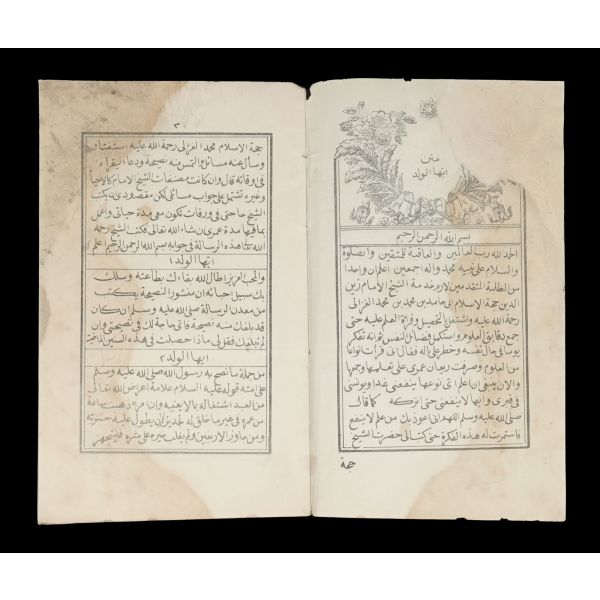 متن
ايها الولد
بسم الله الرحمن الرحيم
الحمد لله رب العالمين والعاقبة للمتقين والصلوة
والسلام على نبيه محمد واله اجمعين اعلم ان واحدا
من الطلبة المتقدمين لازم خدمة الشيخ الامام زين
الدين حجة الاسلام ابى حامد بن محمد بن محمد الغزالى
رحمة الله عليه واشتغل بالتحصيل وقراءة العلم عليه حتى
جمع دقايق العلوم واستكمل فضائل النفس ثم انه تفكر
يوما فى حال نفسه وخطر على باله فقال انى قرأت انواعا
من العلوم وصرفت ريعان عمرى على تعلمها وجمعها
والان ينبغى ان اعلم اى نوعها ينفعنى غدا ويونسنى
فى قبرى وايها لا ينفعنى حتى اتركه كما قال
صلى الله عليه وسلم اللهم انى اعوذ بك من علم لا ينفع
فاستمرت له هذه الفكرة حتى كتب الى حضرت الشيخ
حجة
٣
حجة الاسلام محمد الغزالى رحمة الله عليه استفتاء
وسأل عنه مسائل والتمس منه نصيحة ودعاء ليقرأ
فى وقاته قال وان كانت مصنفات الشيخ الامام كالاحيا
وغيره تشتمل على جواب مسائلى لكن مقصودى ان يكتب
الشيخ حاجتى فى ورقات تكون معى مدة حياتى واعمل
بما فيها مدة عمرى ان شاء الله تعالى فكتب الشيخ رحمه
الله تعالى هذه الرسالة فى جوابه بسم الله الرحمن الرحيم اعلم
ايها الولد ١
والمحب العزيز اطال الله بقاءك بطاعته وسلك
بك سبيل احبائه ان منشور النصيحة يكتب
من معدن الرسالة صلى الله عليه وسلم ان كان
قد بلغك منه نصيحة فاى حاجة لك فى نصيحتى وان
لم تبلغك فقل لى ماذا حصلت فى هذه السنين الماضية
ايها الولد ٢
من جملة ما نصح به رسول الله صلى الله عليه وسلم
على امته قوله عليه السلام علامة اعراض الله تعالى
من العبد اشتغاله بما لا يعنيه وان امرأ ذهبت ساعة
من عمره فى غير ما خلق له لجدير ان يطول عليه حسرته
ومن جاوز الاربعين ولم يغلب خيره على شره فليتجهز